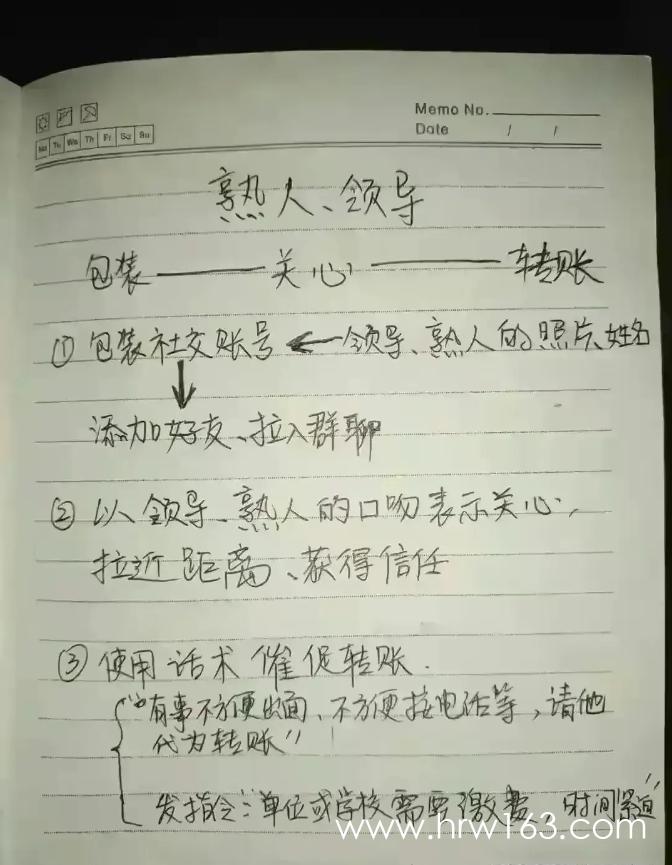 Memo No.
Date / /
Mo Tu We Th Fr Sa Su
熟人、领导
包装——关心——转账
① 包装社交账号 ← 领导、熟人的照片、姓名
↓
添加好友、拉入群聊
② 以领导、熟人的口吻表示关心,
拉近距离、获得信任
③ 使用话术催促转账.
“有事不方便出面、不方便接电话等,请他
代为转账”
发指令:“单位或学校需要缴费 时间紧迫”
www.hrw163.com